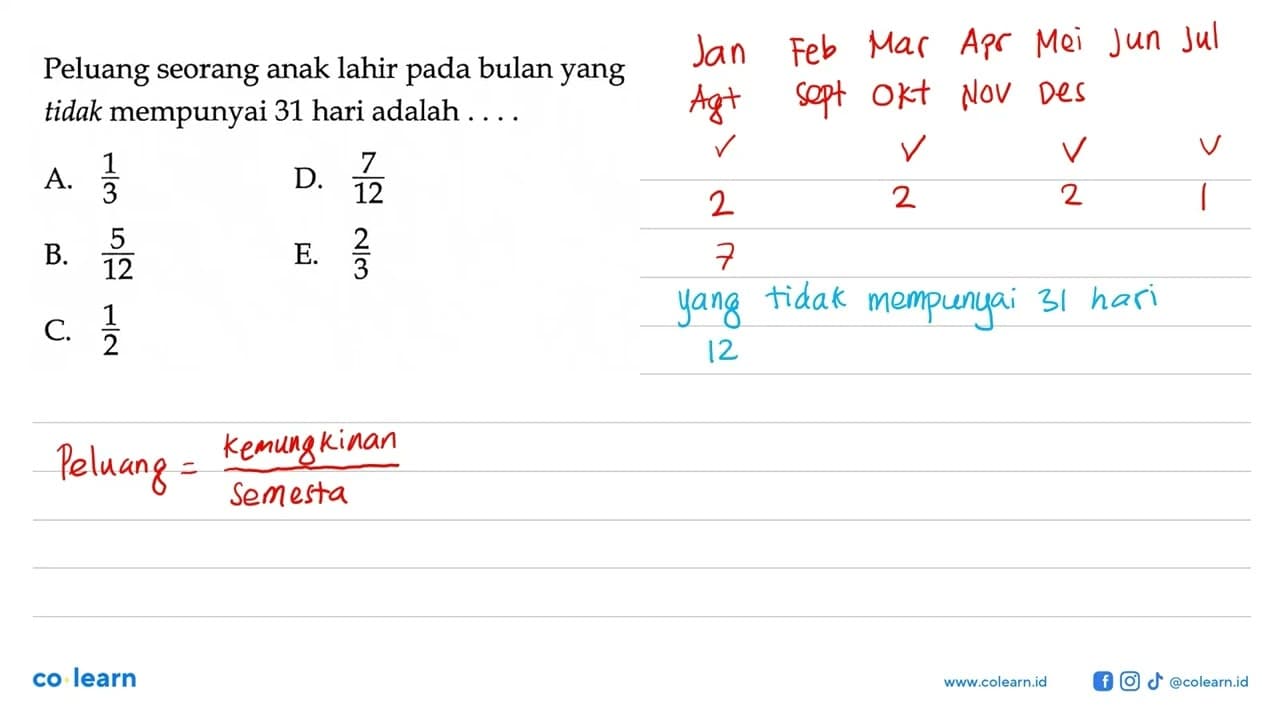 Peluang seorang anak lahir pada bulan yang
tidak mempunyai 31 hari adalah . . . .
A. 1/3 D. 7/12
B. 5/12 E. 2/3
C. 1/2
Jan Feb Mar Apr Mei Jun Jul
Agt Sept Okt Nov Des
✓ ✓ ✓ ✓
2 2 2 1
7
yang tidak mempunyai 31 hari
12
Peluang = kemungkinan / semesta
co learn
www.colearn.id @colearn.id